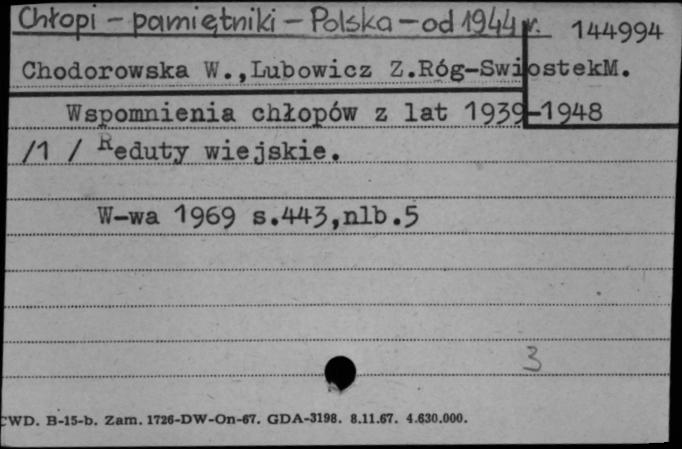 Chłopi - pamiętniki - Polska - od 1944 r. 144994
Chodorowska W.,Lubowicz Z.Róg-SwiostekM.
Wspomnienia chłopów z lat 1939-1948
/1 / Reduty wiejskie.
W-wa 1969 s.443,nlb.5
3
CWD. B-15-b. Zam. 1726-DW-On-67. GDA-3198. 8.11.67. 4.630.000.